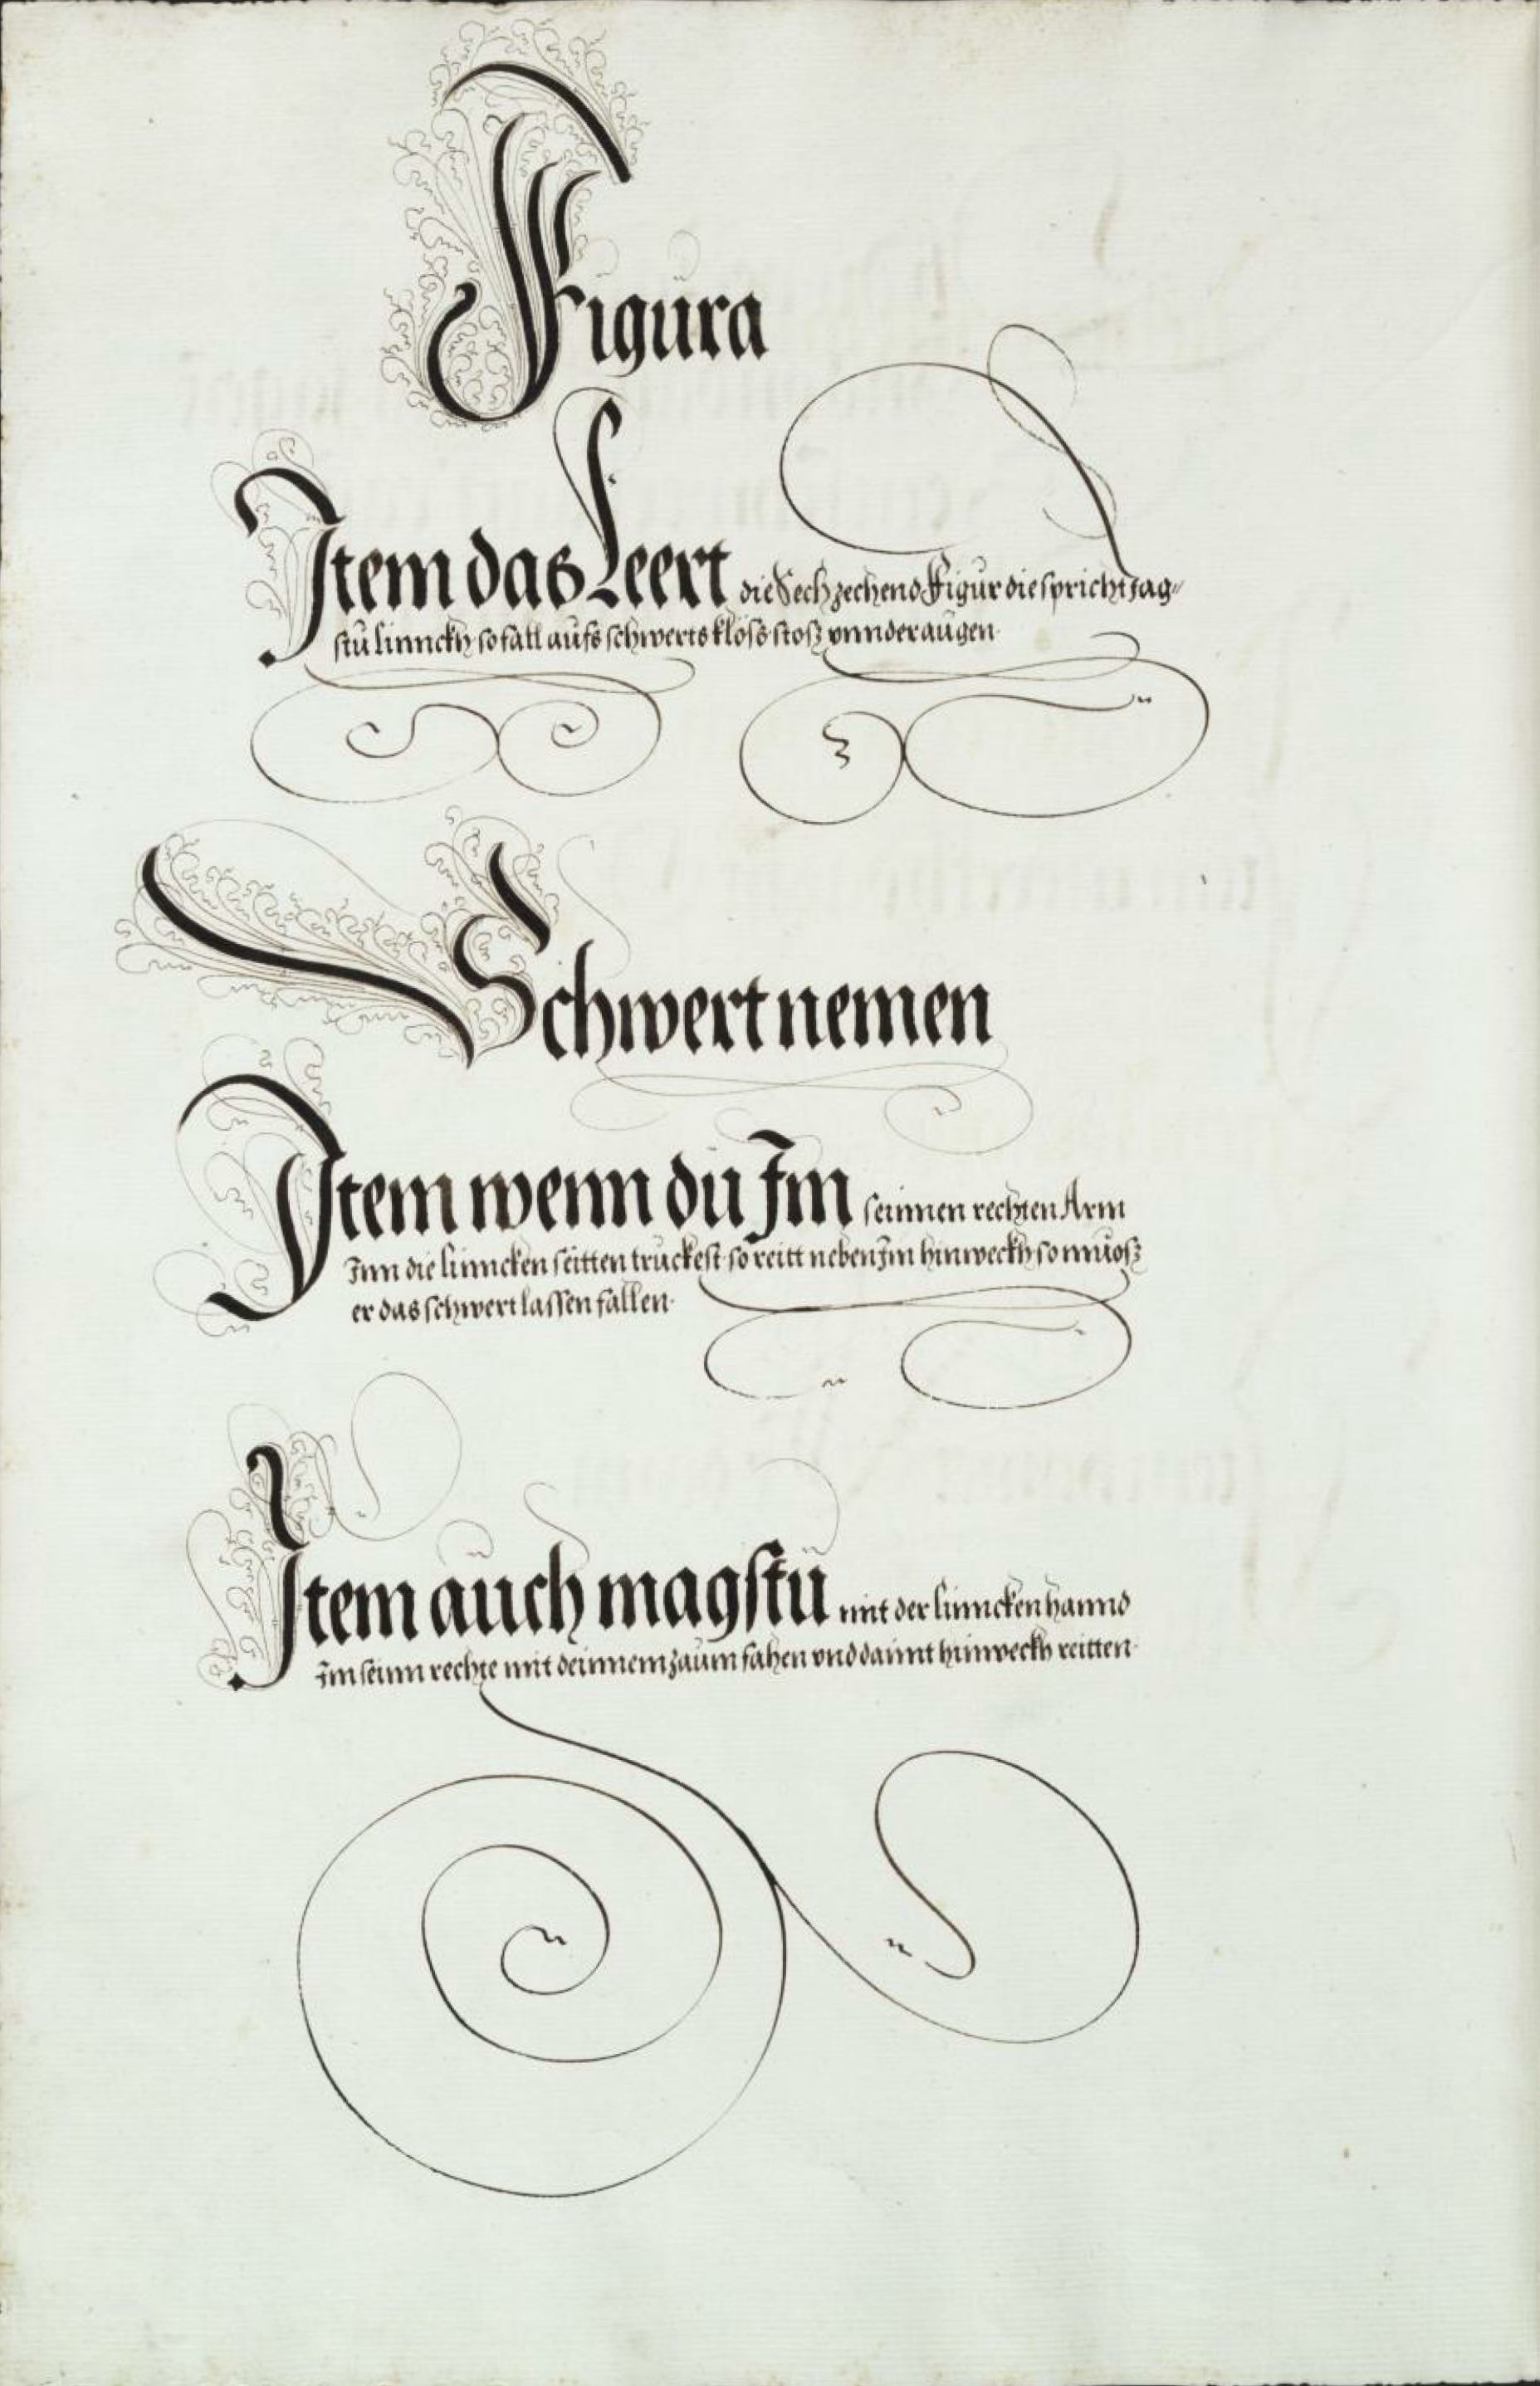 Figura
Item das Leert die Sechzechend Figur die spricht Jag-
stu linnckh so fall aufs schwerts klöss stosz vnnder augen.
Schwert nemen
Item wenn du Im seinnen rechten Arm
Inn die linncken seitten truckest so reitt neben Im hinweckh so muosz
er das schwert lassen fallen.
Item auch magstu mit der linncken hannd
Im seinn rechte mit deinnem zaum fahen vnd damit hinweckh reitten.